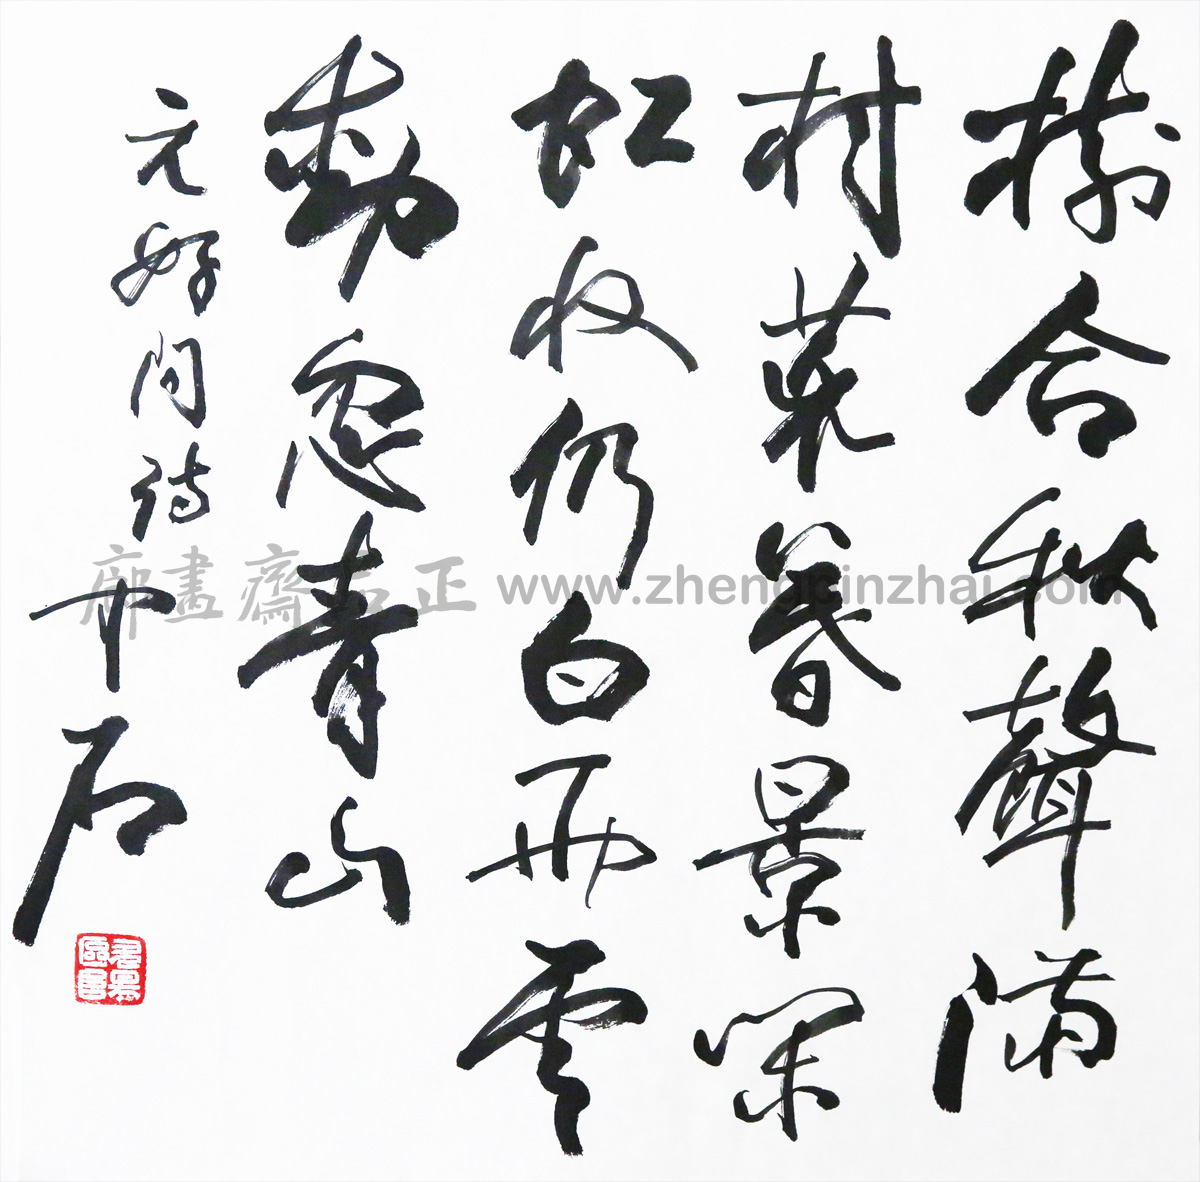 樹合秋聲滿
村荒暮景閑
虹收仍白雨雲
動忽青山
元好問詩 介石
正品齋畫廊 www.zhengpinzhai.com